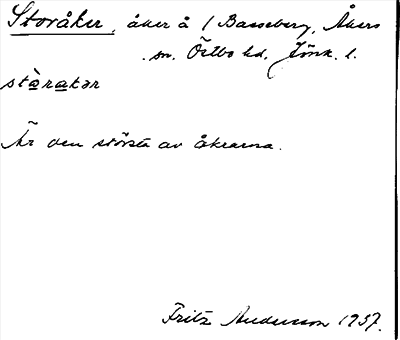 Storåker, åker å 1 Basseberg, Åkers
sn. Östbo hd, Jönk. l.
stòrakər
Är den största av åkrarna.
Fritz Andersson 1937.